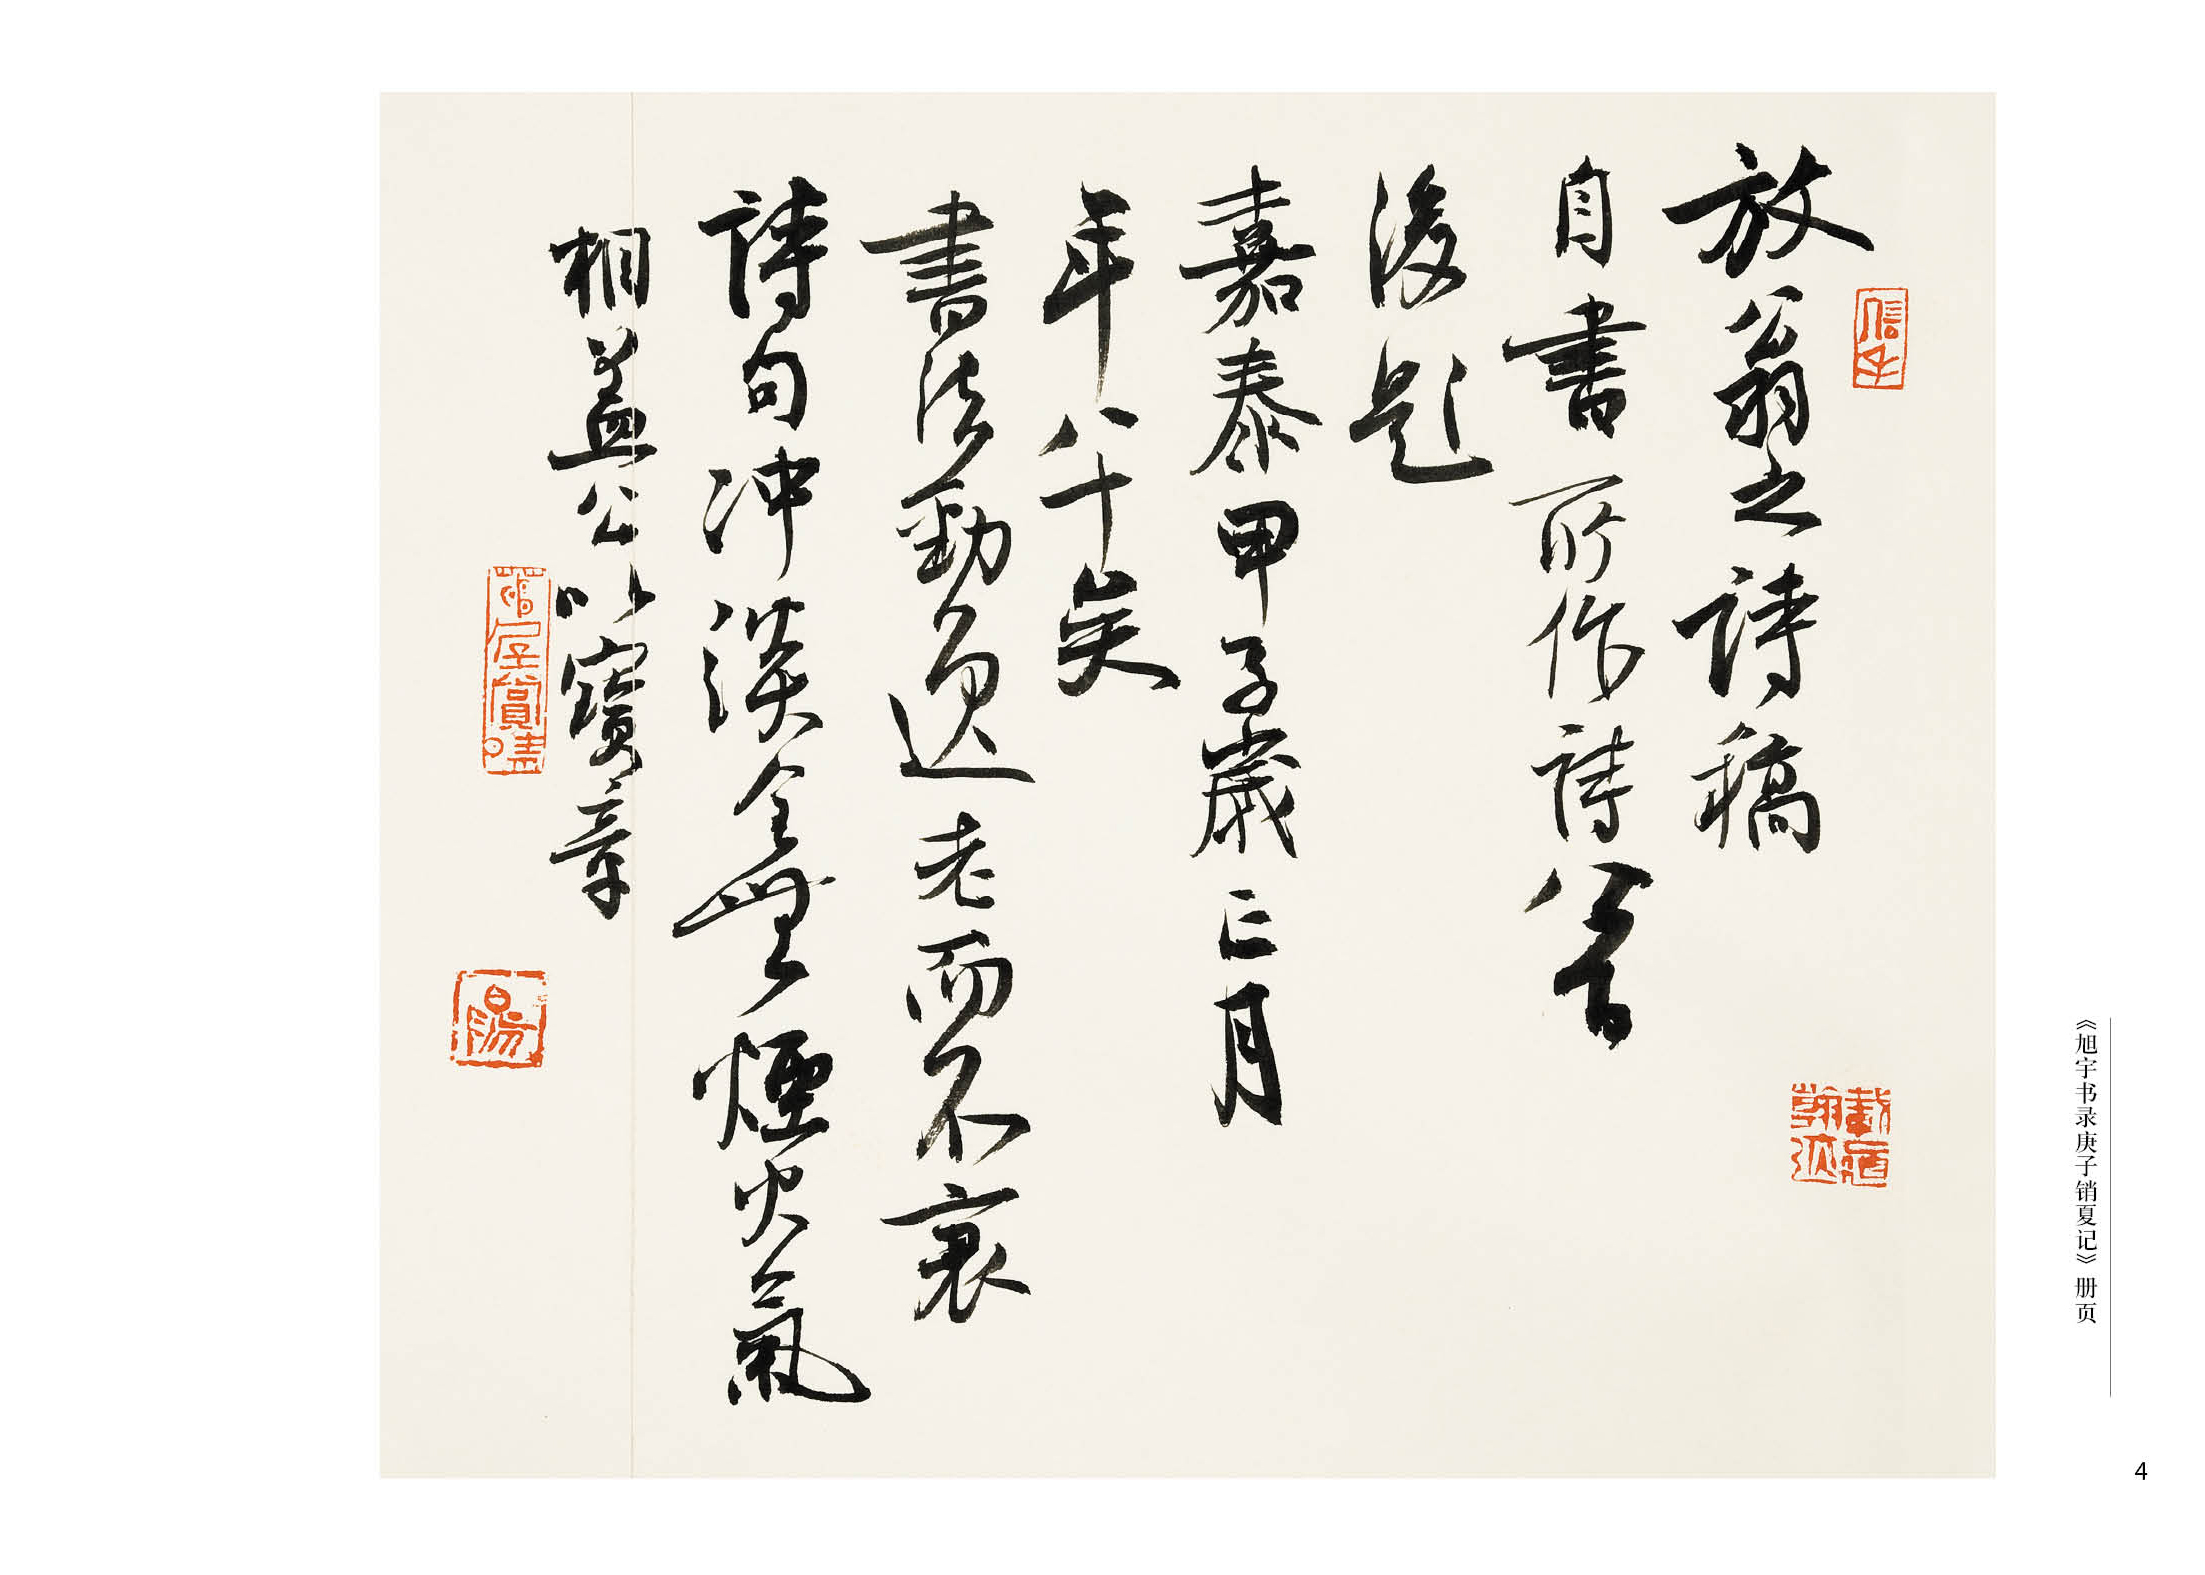 放翁之詩稿
自書所作詩八首
後題
嘉泰甲子歲正月
年八十矣
書法勁逸老而不衰
詩句冲淡全無煙火氣
相盖公以寶章
《旭宇书录庚子销夏记》册页
4